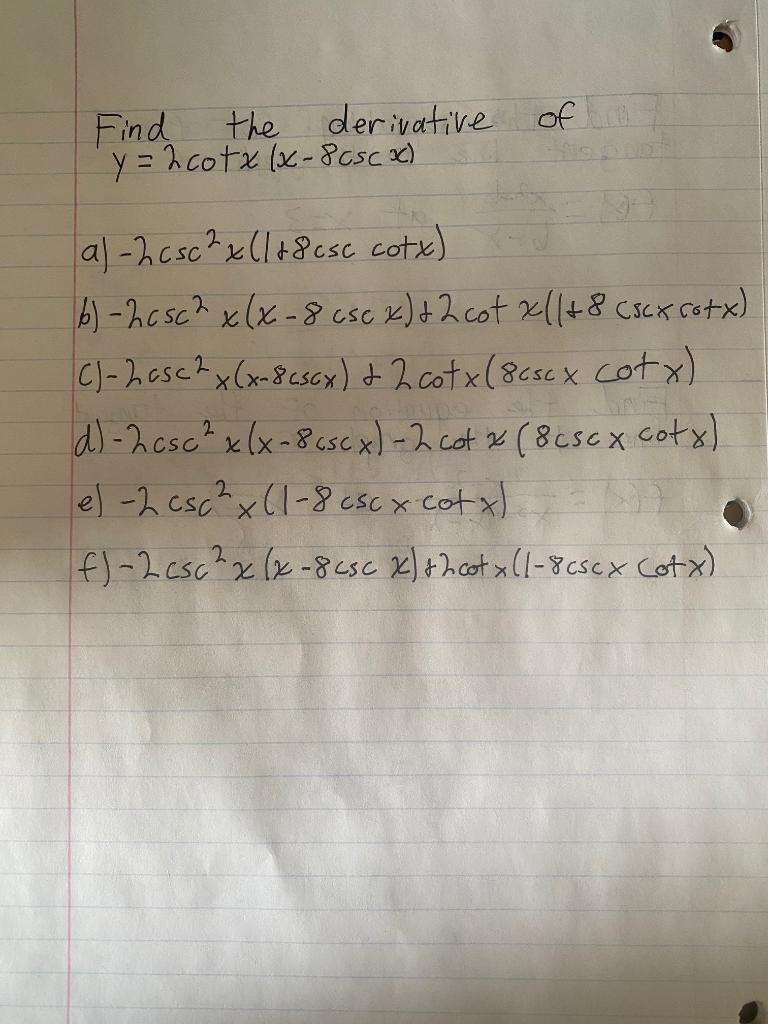 Find the derivative of
y = 2cotx (x - 8cscx)
a) -2csc²x(1+8csc cotx)
b) -2csc² x(x - 8 csc x)+2cot x(1+8 cscx cotx)
c) -2csc²x(x-8cscx) + 2cotx(8cscx cotx)
d) -2csc²x(x-8cscx) -2cot x (8cscx cotx)
e) -2csc²x(1-8cscx cotx)
f) -2csc²x(x-8csc x)+2cotx(1-8cscx cotx)